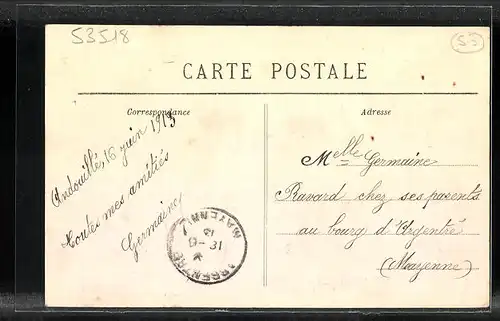 53518
53
CARTE POSTALE
Correspondance
Adresse
Andouillé, 16 juin 1913
Toutes mes amitiés
Germaine
Melle Germaine
Ravard chez ses parents
au bourg d'Argentré
(Mayenne)
ARGENTRÉ
MAYENNE